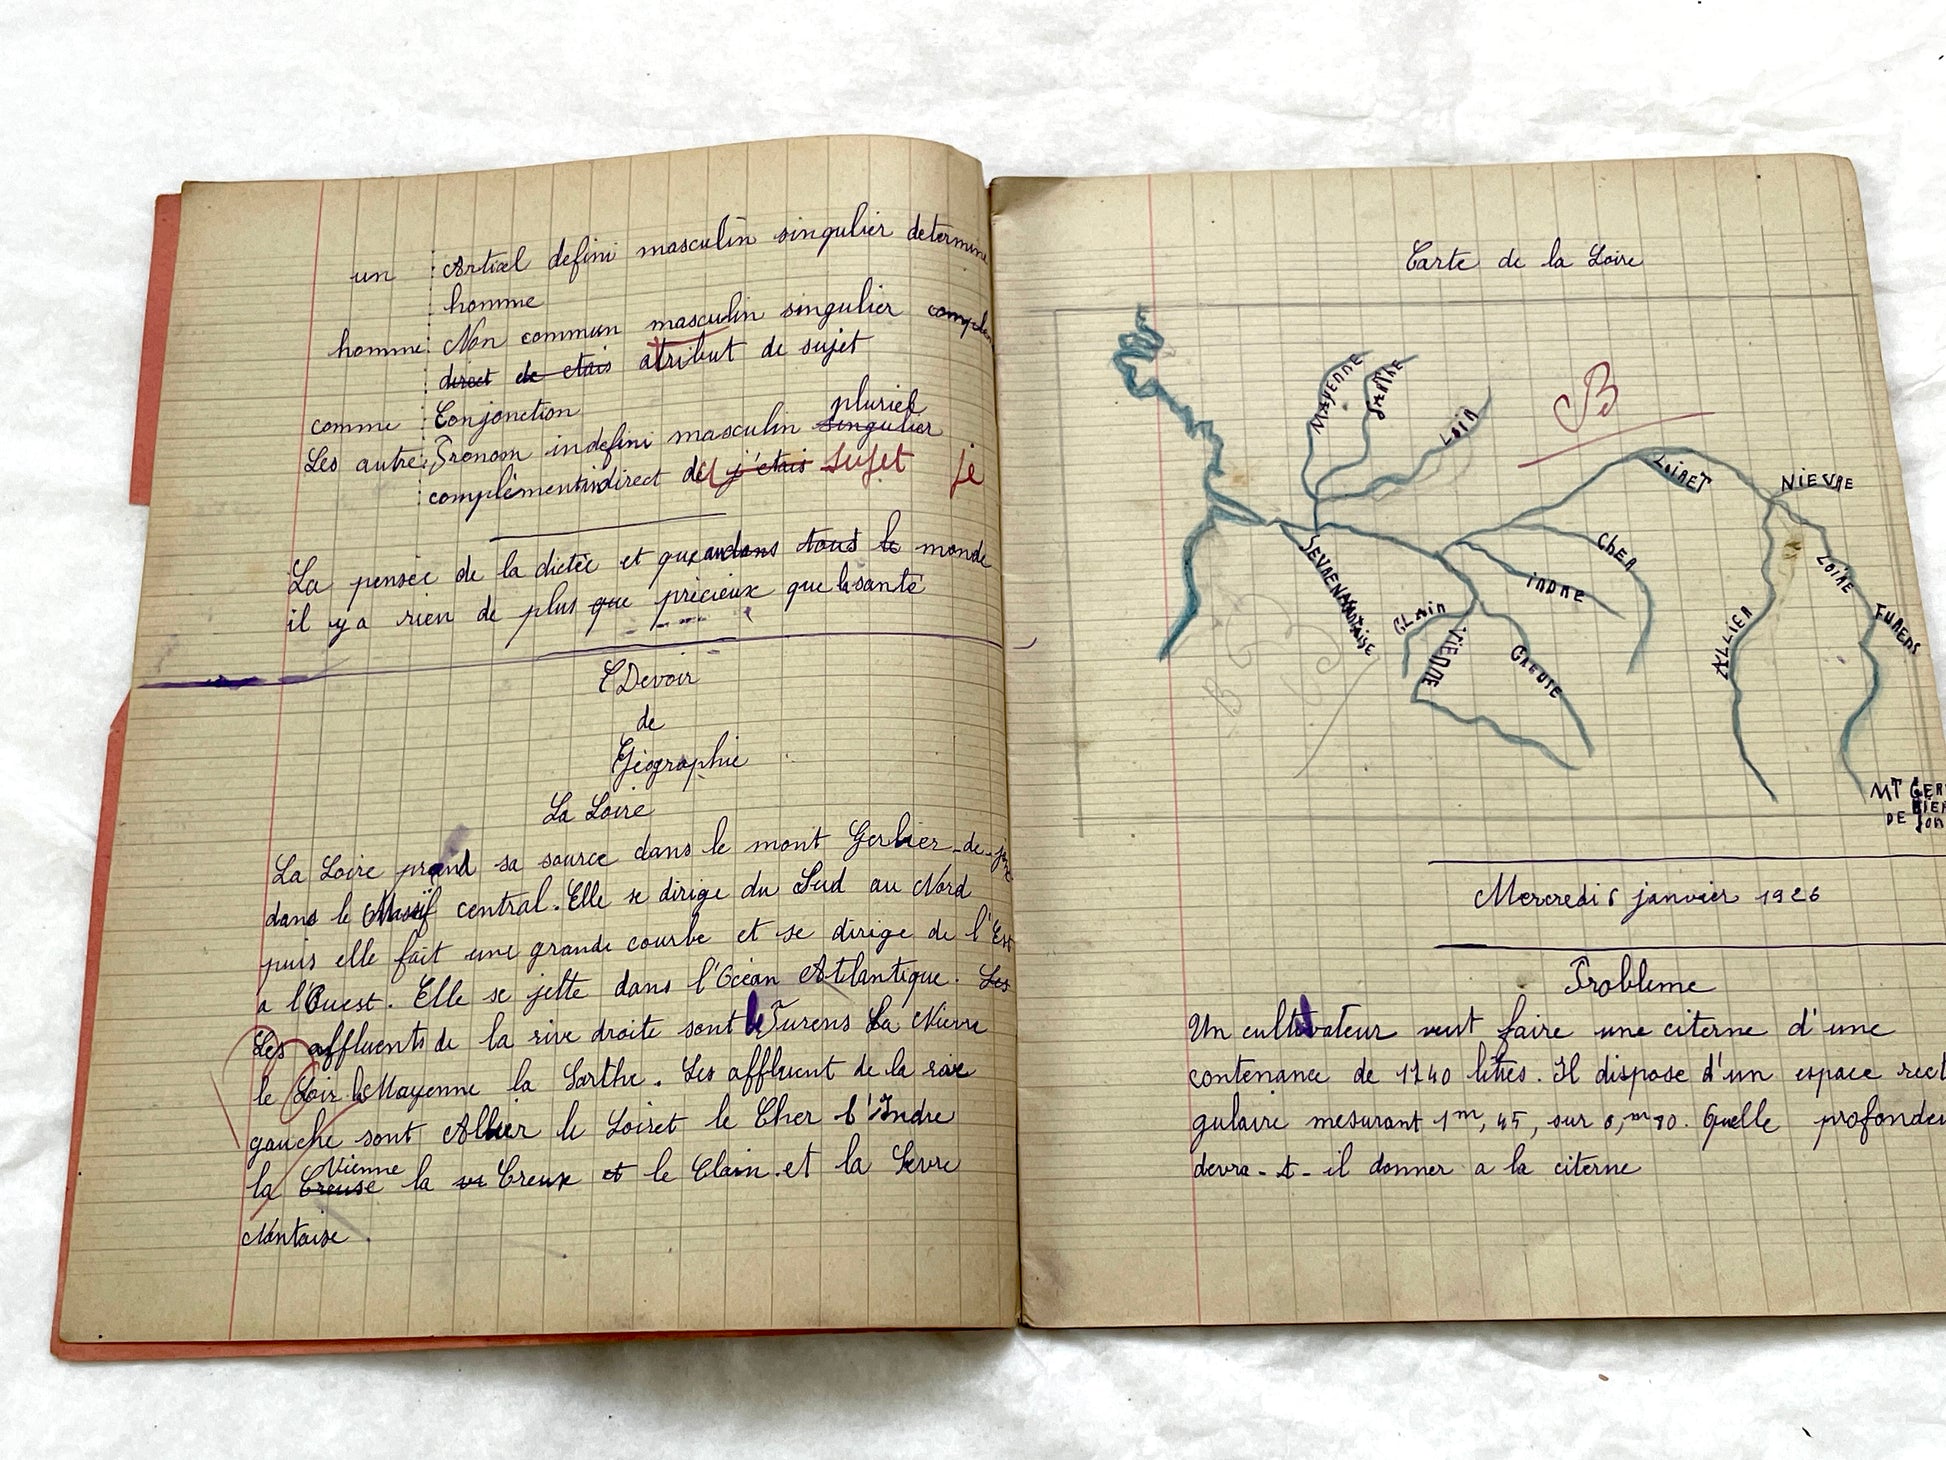 un : Articel defini masculin singulier determine
homme
homme : Non commun masculin singulier complem
direct de etais atribut de sujet
comme : Conjonction
pluriel
Les autre : Pronom indefini masculin singulier
complément indirect de j'étais sujet je
La pensée de la dictée et que dans tous le monde
il y a rien de plus que précieux que la santé
Devoir
de
Géographie
La Loire
La Loire prend sa source dans le mont Gerbier-de-
dans le Massif central. Elle se dirige du Sud au Nord
puis elle fait une grande courbe et se dirige de l'Est
a l'Ouest. Elle se jette dans l'Océan Atlantique. Les
Les affluents de la rive droite sont le Furens La Nievre
le Loir la Mayenne la Sarthe. Les affluent de la rive
gauche sont Allier le Loiret le Cher l'Indre
Vienne
la Creuse la vi Creuse et le Clain et la Sevre
Nantaise.
Carte de la Loire
B
MAYENNE
SARTHE
LOIR
LOIRET
NIEVRE
CHER
INDRE
LOIRE
FURENS
SEVRE NANTAISE
CLAIN
VIENNE
CREUSE
ALLIER
MT GER
BIER
DE JON
Mercredi 6 janvier 1926
Probleme
Un cultivateur veut faire une citerne d'une
contenance de 1740 litres. Il dispose d'un espace rect
gulaire mesurant 1m, 45, sur 0,m 80. Quelle profondeu
devra-t-il donner a la citerne